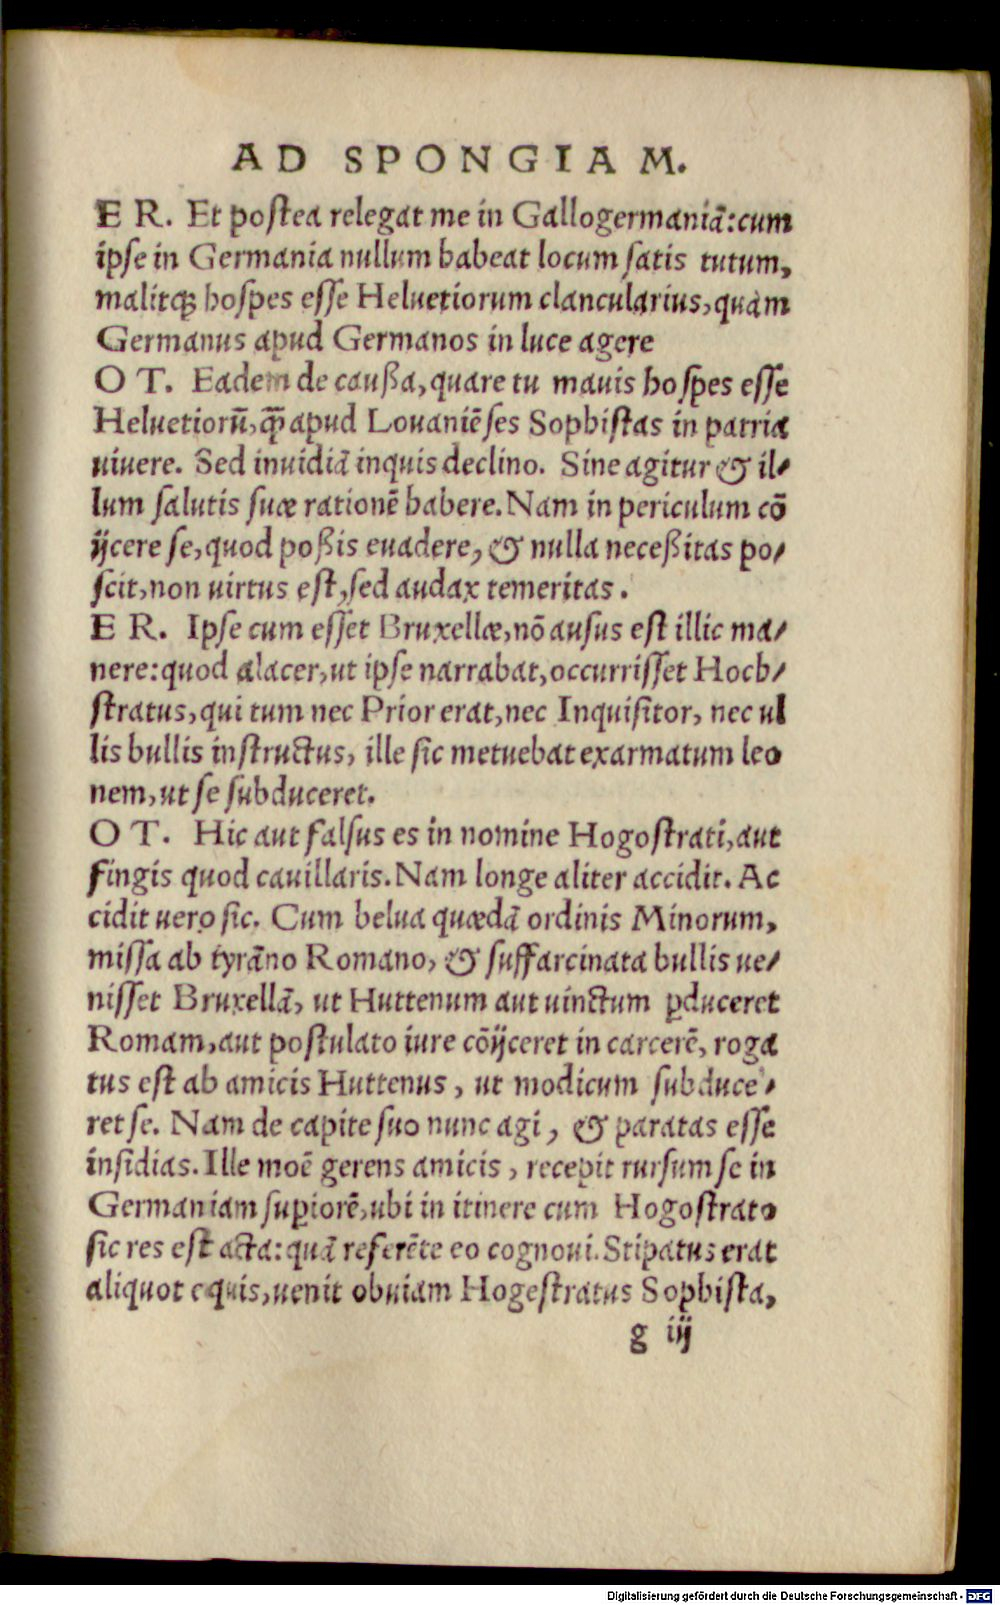 AD SPONGIAM.
ER. Et postea relegat me in Gallogermaniā: cum
ipse in Germania nullum habeat locum satis tutum,
malitq́; hospes esse Heluetiorum clancularius, quàm
Germanus apud Germanos in luce agere
OT. Eadem de caußa, quare tu mauis hospes esse
Heluetiorū, q̃ apud Louaniēses Sophistas in patria
uiuere. Sed inuidiā inquis declino. Sine agitur & il-
lum salutis suæ rationē habere. Nam in periculum cō
ijcere se, quod poßis euadere, & nulla neceßitas po-
scit, non uirtus est, sed audax temeritas.
ER. Ipse cum esset Bruxellæ, nō ausus est illic ma-
nere: quod alacer, ut ipse narrabat, occurrisset Hoch-
stratus, qui tum nec Prior erat, nec Inquisitor, nec ul
lis bullis instructus, ille sic metuebat exarmatum leo
nem, ut se subduceret.
OT. Hic aut falsus es in nomine Hogostrati, aut
fingis quod cauillaris. Nam longe aliter accidit. Ac
cidit uero sic. Cum belua quædā ordinis Minorum,
missa ab tyrāno Romano, & suffarcinata bullis ue-
nisset Bruxellā, ut Huttenum aut uinctum ꝑduceret
Romam, aut postulato iure cōijceret in carcerē, roga
tus est ab amicis Huttenus, ut modicum subduce-
ret se. Nam de capite suo nunc agi, & paratas esse
insidias. Ille moē gerens amicis, recepit rursum se in
Germaniam suꝑiorē, ubi in itinere cum Hogostrato
sic res est acta: quā referēte eo cognoui. Stipatus erat
aliquot equis, uenit obuiam Hogestratus Sophista,
g iij
Digitalisierung gefördert durch die Deutsche Forschungsgemeinschaft - DFG